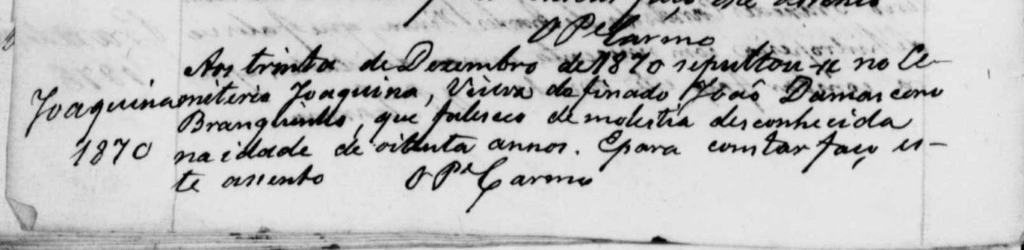 O Pe Carmo
Aos trinta de Dezembro de 1870 sepultou-se no Ce-
Joaquina meterio Joaquina, Viuva do finado João Damasceno
Branquinho, que faleceo de molestia desconhecida
1870 na idade de oitenta annos. E para constar faço es-
te assento O Pe Carmo